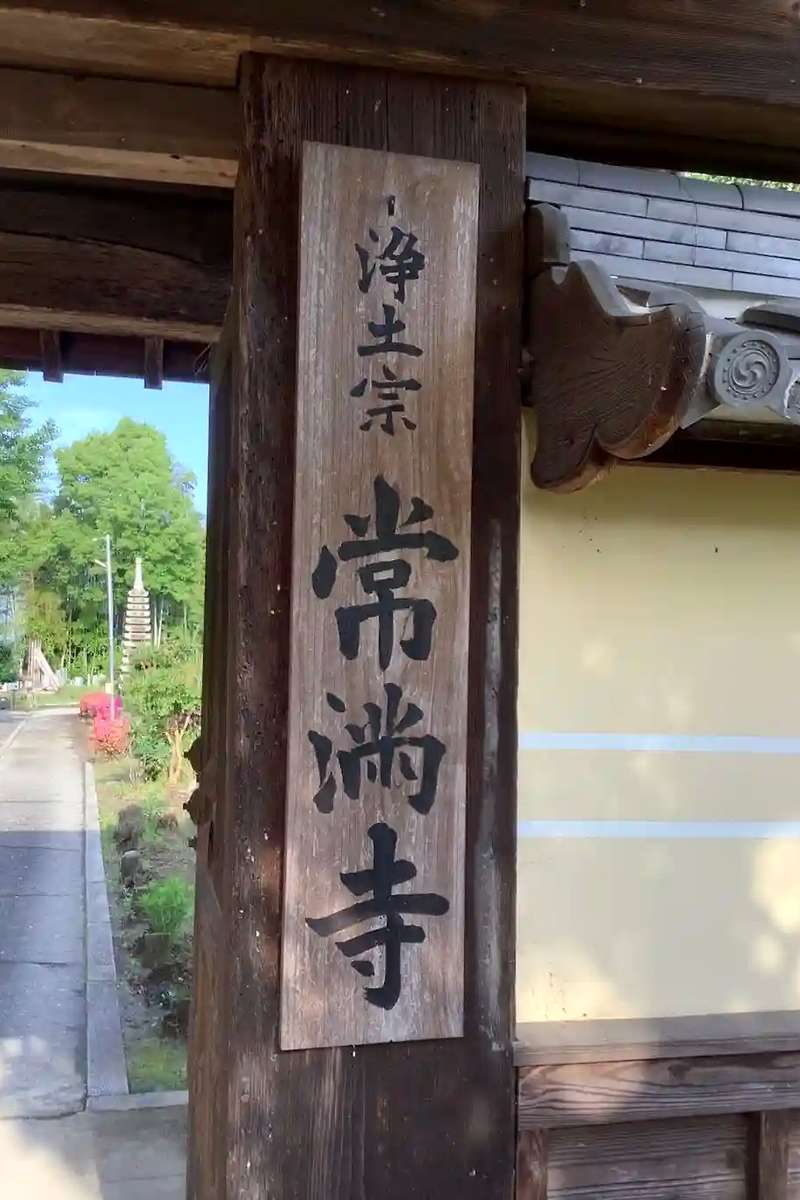 浄土宗
常満寺